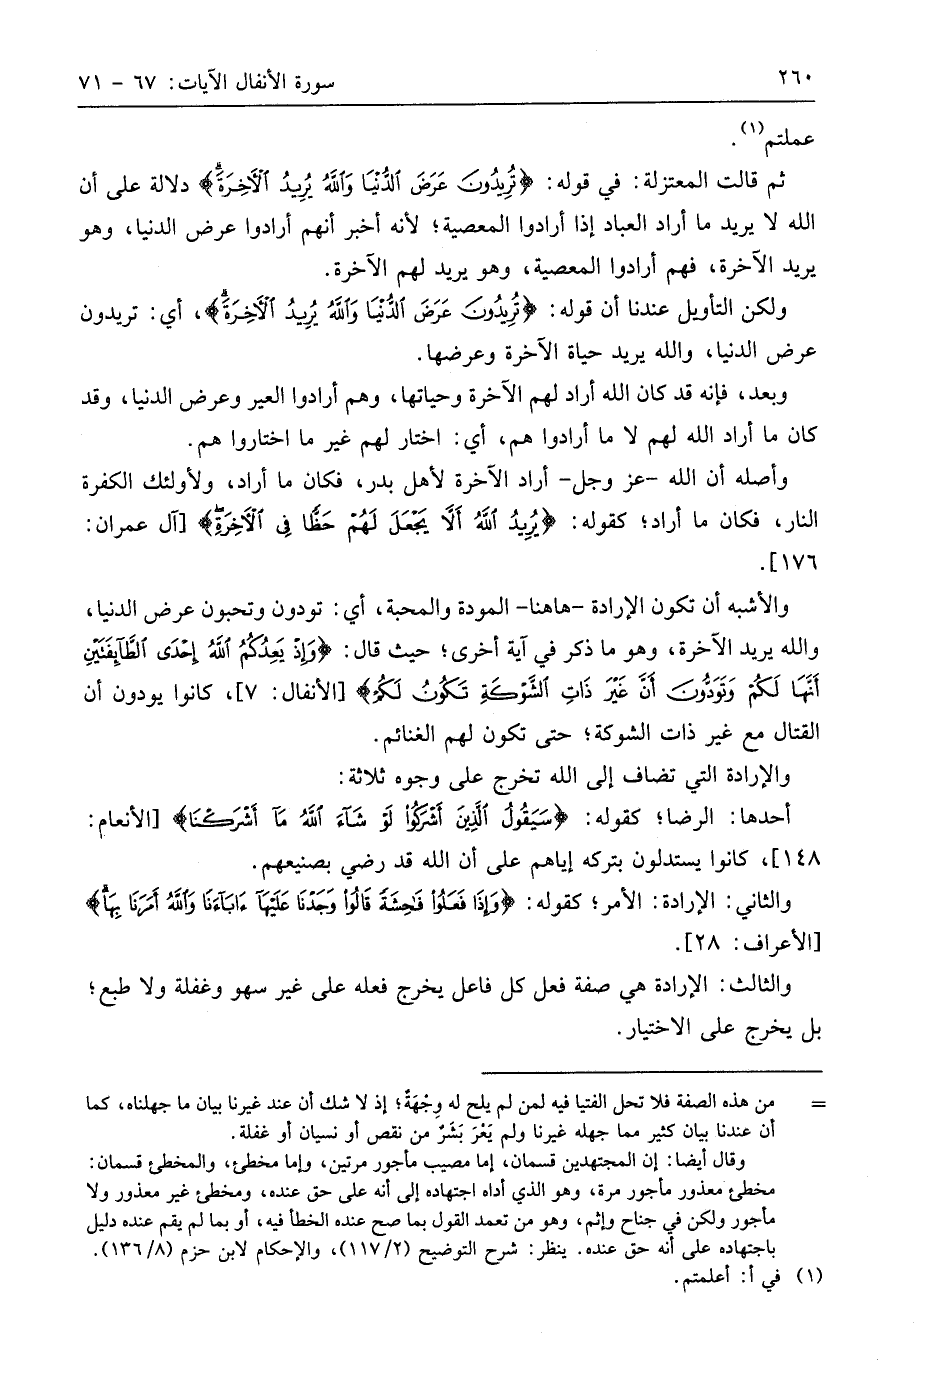 ٢٦٠ سورة الأنفال الآيات: ٦٧ - ٧١
عملتم(١).
ثم قالت المعتزلة: في قوله: ﴿تُرِيدُونَ عَرَضَ ٱلدُّنْيَا وَٱللَّهُ يُرِيدُ ٱلْآخِرَةَۗ﴾ دلالة على أن
الله لا يريد ما أراد العباد إذا أرادوا المعصية؛ لأنه أخبر أنهم أرادوا عرض الدنيا، وهو
يريد الآخرة، فهم أرادوا المعصية، وهو يريد لهم الآخرة.
ولكن التأويل عندنا أن قوله: ﴿تُرِيدُونَ عَرَضَ ٱلدُّنْيَا وَٱللَّهُ يُرِيدُ ٱلْآخِرَةَۗ﴾، أي: تريدون
عرض الدنيا، والله يريد حياة الآخرة وعرضها.
وبعد، فإنه قد كان الله أراد لهم الآخرة وحياتها، وهم أرادوا العير وعرض الدنيا، وقد
كان ما أراد الله لهم لا ما أرادوا هم، أي: اختار لهم غير ما اختاروا هم.
وأصله أن الله -عز وجل- أراد الآخرة لأهل بدر، فكان ما أراد، ولأولئك الكفرة
النار، فكان ما أراد؛ كقوله: ﴿يُرِيدُ ٱللَّهُ أَلَّا يَجْعَلَ لَهُمْ حَظًّا فِى ٱلْآخِرَةِۖ﴾ [آل عمران:
١٧٦].
والأشبه أن تكون الإرادة -هاهنا- المودة والمحبة، أي: تودون وتحبون عرض الدنيا،
والله يريد الآخرة، وهو ما ذكر في آية أخرى؛ حيث قال: ﴿وَإِذْ يَعِدُكُمُ ٱللَّهُ إِحْدَى ٱلطَّآئِفَتَيْنِ
أَنَّهَا لَكُمْ وَتَوَدُّونَ أَنَّ غَيْرَ ذَاتِ ٱلشَّوْكَةِ تَكُونُ لَكُمْ﴾ [الأنفال: ٧]، كانوا يودون أن
القتال مع غير ذات الشوكة؛ حتى تكون لهم الغنائم.
والإرادة التي تضاف إلى الله تخرج على وجوه ثلاثة:
أحدها: الرضا؛ كقوله: ﴿سَيَقُولُ ٱلَّذِينَ أَشْرَكُوا۟ لَوْ شَآءَ ٱللَّهُ مَآ أَشْرَكْنَا﴾ [الأنعام:
١٤٨]، كانوا يستدلون بتركه إياهم على أن الله قد رضي بصنيعهم.
والثاني: الإرادة: الأمر؛ كقوله: ﴿وَإِذَا فَعَلُوا۟ فَٰحِشَةً قَالُوا۟ وَجَدْنَا عَلَيْهَآ ءَابَآءَنَا وَٱللَّهُ أَمَرَنَا بِهَاۗ﴾
[الأعراف: ٢٨].
والثالث: الإرادة هي صفة فعل كل فاعل يخرج فعله على غير سهو وغفلة ولا طبع؛
بل يخرج على الاختيار.
= من هذه الصفة فلا تحل الفتيا فيه لمن لم يلح له وِجْهَةٌ؛ إذ لا شك أن عند غيرنا بيان ما جهلناه، كما
أن عندنا بيان كثير مما جهله غيرنا ولم يَعْرَ بَشَرٌ من نقص أو نسيان أو غفلة.
وقال أيضا: إن المجتهدين قسمان، إما مصيب مأجور مرتين، وإما مخطئ، والمخطئ قسمان:
مخطئ معذور مأجور مرة، وهو الذي أداه اجتهاده إلى أنه على حق عنده، ومخطئ غير معذور ولا
مأجور ولكن في جناح وإثم، وهو من تعمد القول بما صح عنده الخطأ فيه، أو بما لم يقم عنده دليل
باجتهاده على أنه حق عنده. ينظر: شرح التوضيح (١١٧/٢)، والإحكام لابن حزم (١٣٦/٨).
(١) في أ: أعلمتم.